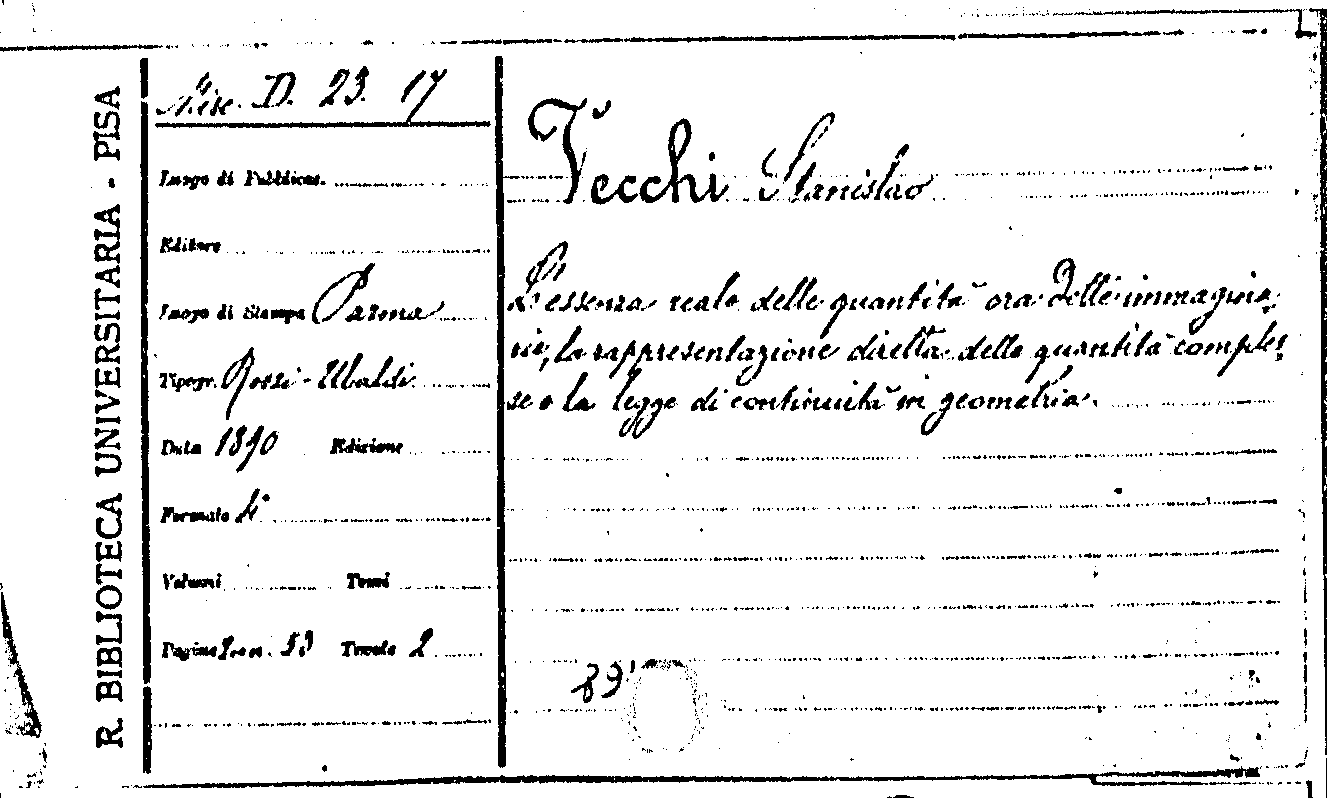 R. BIBLIOTECA UNIVERSITARIA - PISA
Misc. D. 23. 17
Luogo di Pubblicaz.
Editore
Luogo di Stampa Parma
Tipogr. Rossi-Ubaldi
Data 1890 Edizione
Formato 4°
Volumi Tomi
Pagine 53 Tavole 2
Vecchi Stanislao
L'essenza reale delle quantità ora dette immagina-
rie, la rappresentazione diretta delle quantità comples-
se e la legge di continuità in geometria.
89